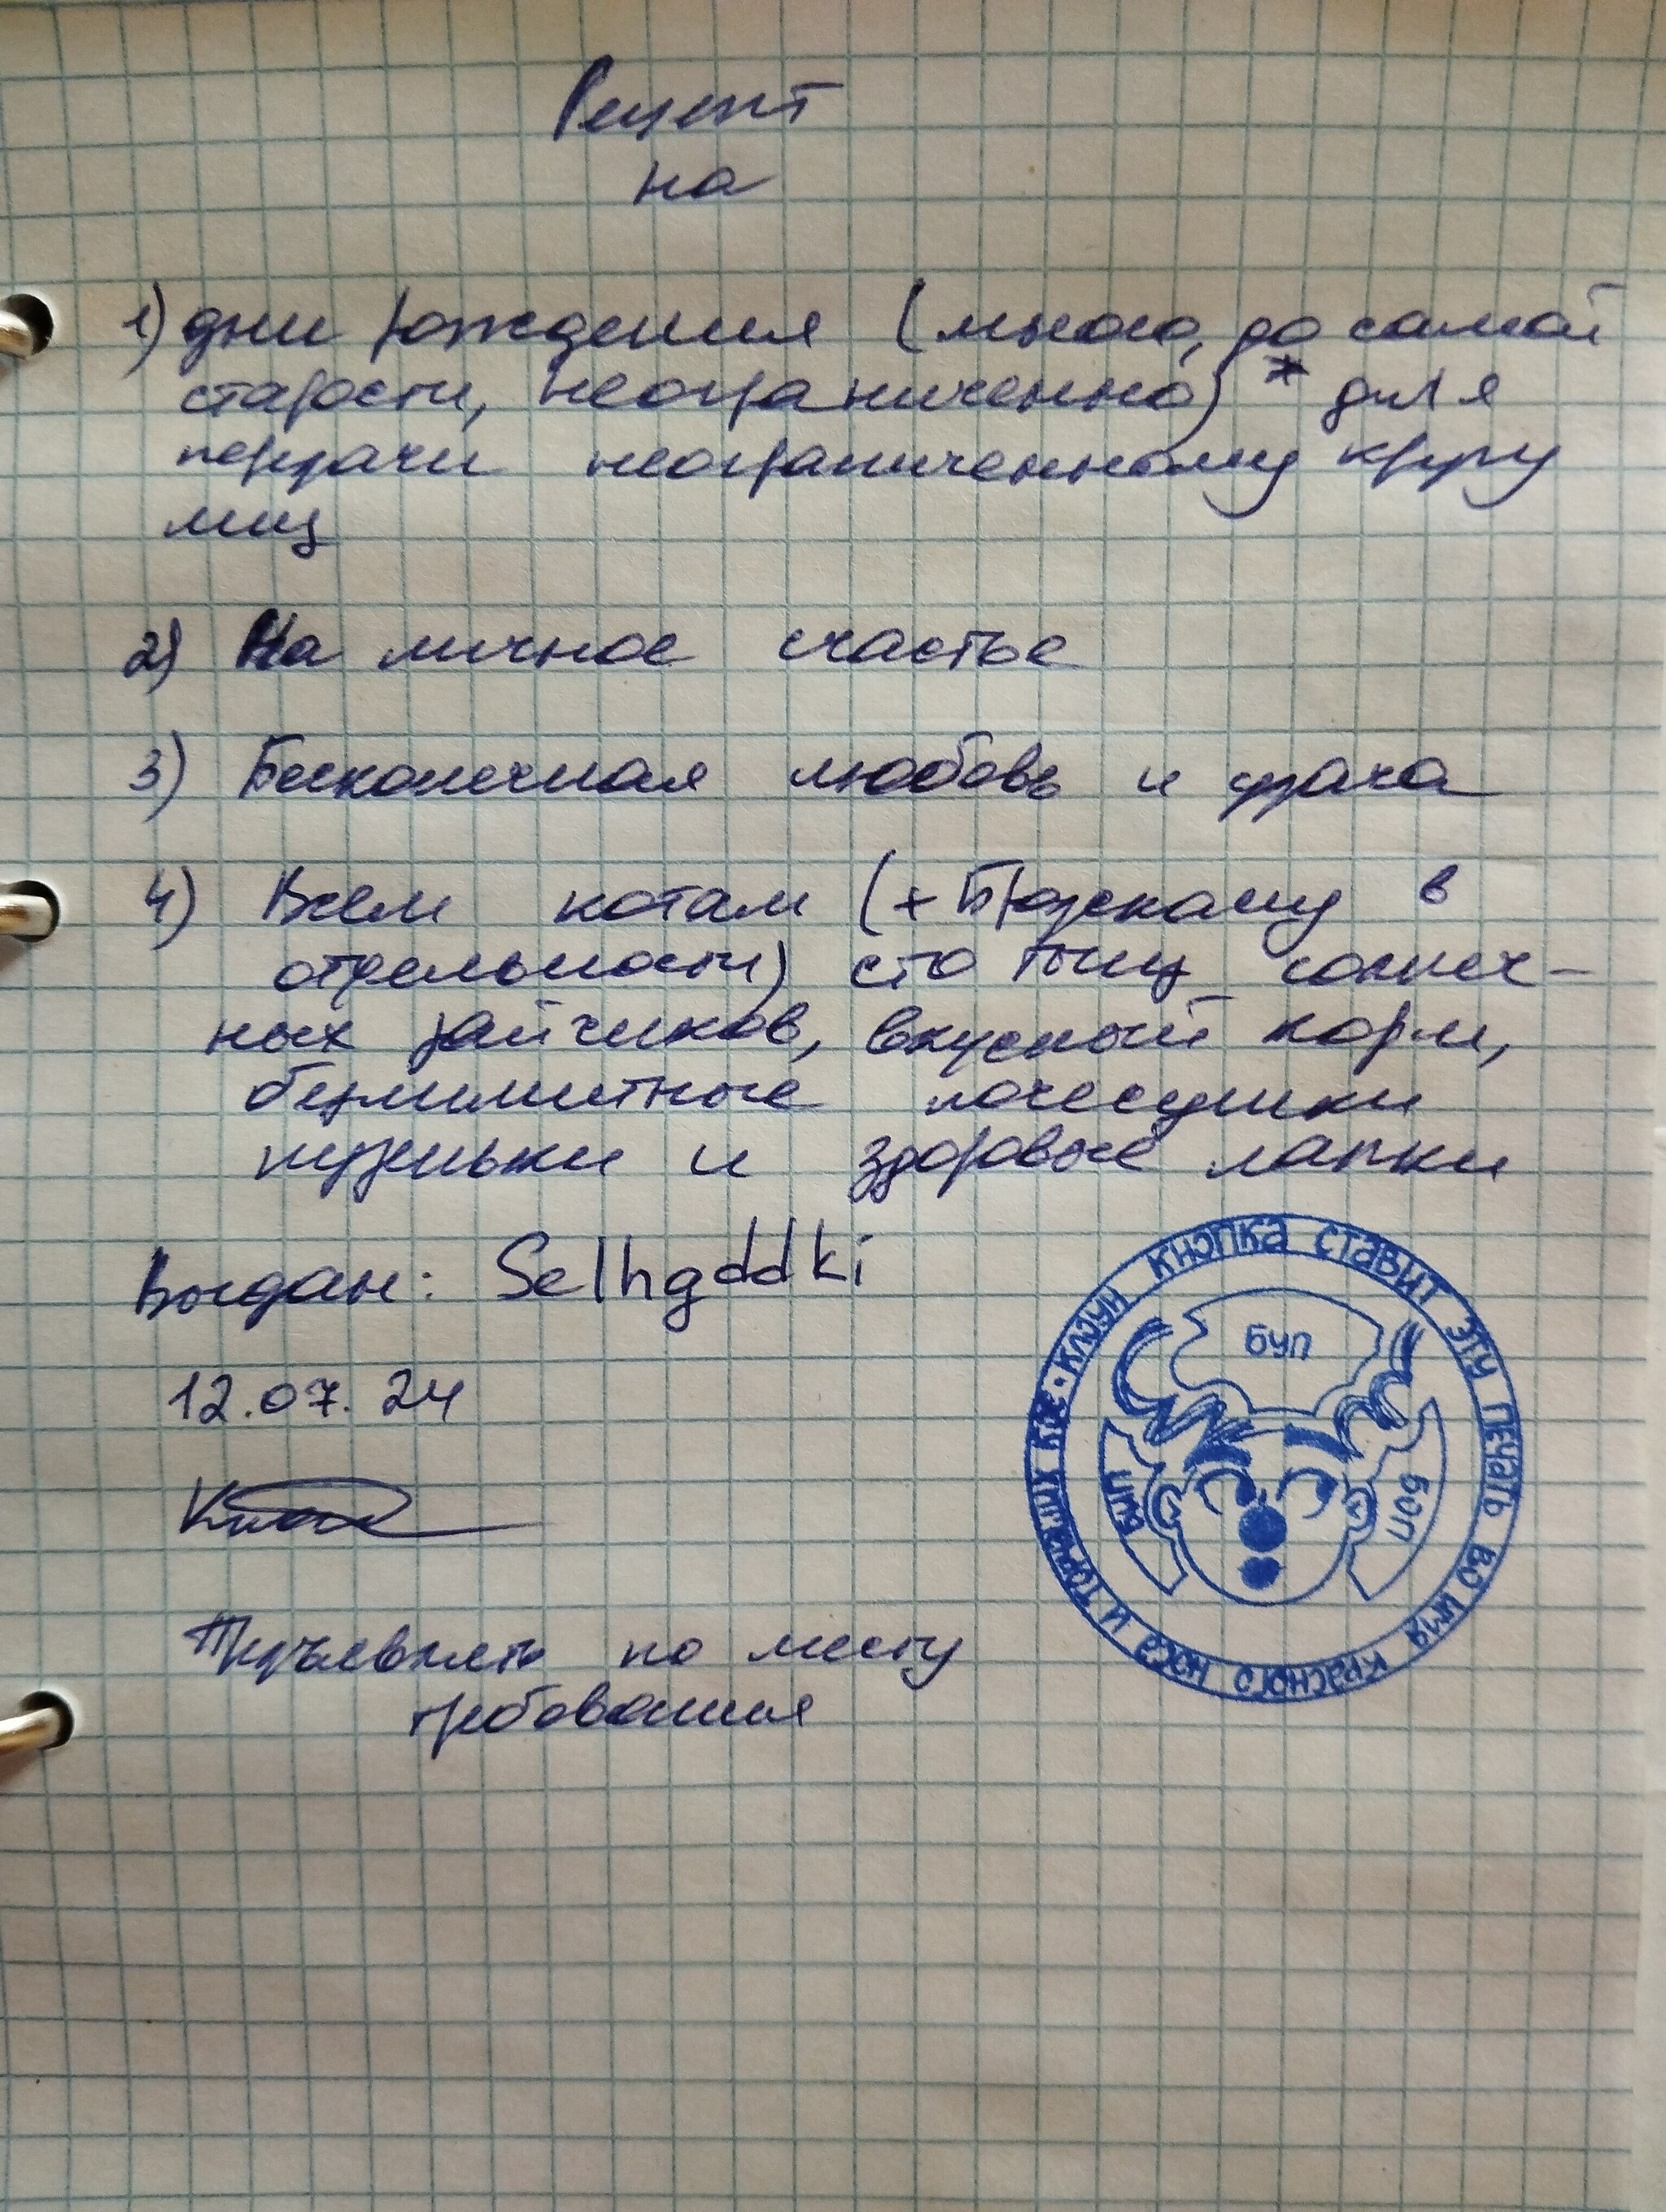 Рецепт
на
1) дни рождения (много, до самой
старости, неограниченно)* для
передачи неограниченному кругу
лиц
2) На личное счастье
3) Бесконечная любовь и удача
4) Всем котам (+ в
отдельности) сто тыщ солнеч-
ных зайчиков, вкусный корм,
безлимитные почесушки
пузеньки и здоровые лапки
Выдан: Selhgddki
12.07.24
Предъявлять по месту
требования
КЛОУН КНОПКА СТАВИТ ЭТУ ПЕЧАТЬ ВО ИМЯ КРАСНОГО НОСА И ТОРЧАЩИХ
БУП
БИП
БОП